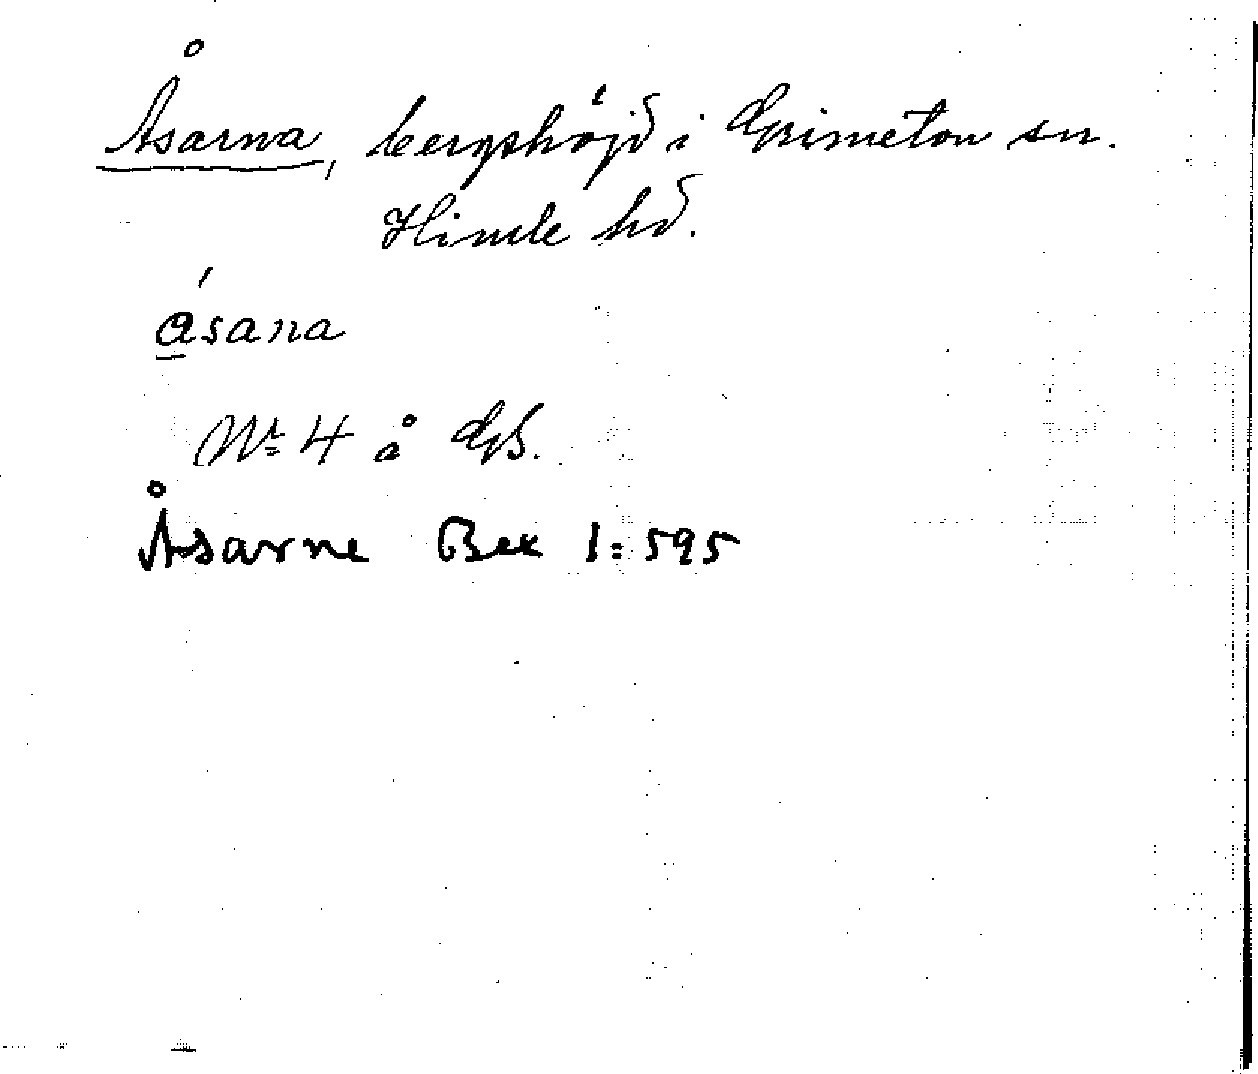 Åsarna, bergshöjd i Grimeton sn.
Himle hd.
ásana
Nr 4 å GS.
Åsarne Bex 1:595